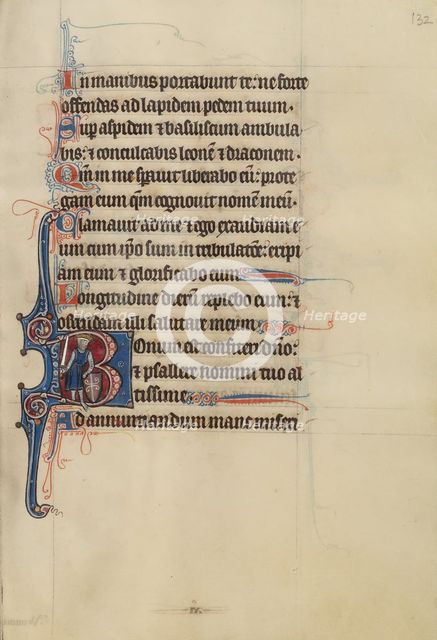 132
In manibus portabunt te: ne forte
offendas ad lapidem pedem tuum.
Sup aspidem & basiliscum ambula
bis: & conculcabis leonē & draconem.
Qm in me spauit liberabo eū: prote
gam eum qm cognouit nomē meū.
Clamauit ad me & ego exaudiam e
um cum ipo sum in tribulatōe: eripi
am eum & glorificabo eum.
Longitudine dierū replebo eum: &
ostendam illi salutare meum.
Bonum est confiteri dno:
& psallere nomini tuo al
tissime.
Ad annunciandum mane miseri
Heritage
Heritage
Heritage
Heritage